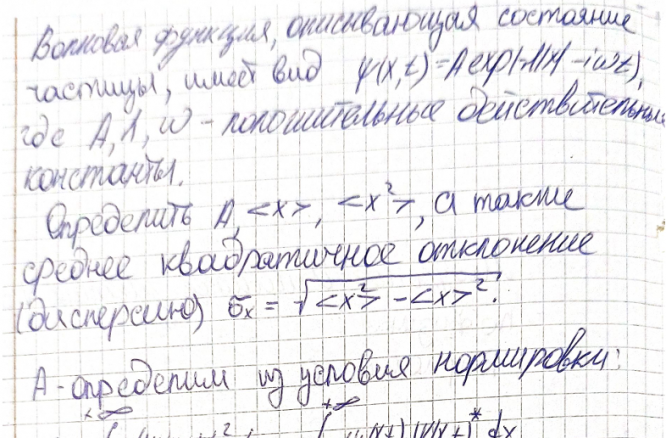 Волновая функция, описывающая состояние
частицы, имеет вид ψ(x,t)=A exp(-λ|x| -iωt),
где A, λ, ω - положительные действительные
константы.
Определить A, <x>, <x²>, а также
среднее квадратичное отклонение
(дисперсию) σₓ = √(<x²> - <x>²).
A - определим из условия нормировки:
+∞ +∞